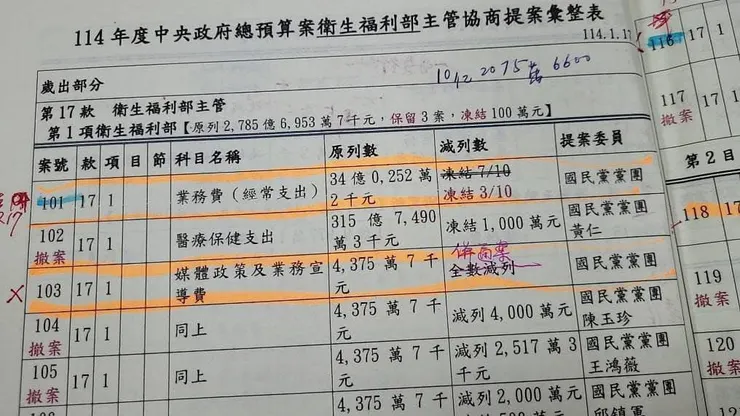 114 年度中央政府總預算案衛生福利部主管協商提案彙整表
114.1.1
歲出部分
2075萬 6600
第 17 款 衛生福利部主管
第 1 項衛生福利部【原列 2,785 億 6,953 萬 7 千元，保留 3 案，凍結 100 萬元】
案號 款 項 目 節 科目名稱 原列數 減列數 提案委員
101 17 1 業務費（經常支出） 34 億 0,252 萬 2 千元 凍結 7/10 凍結 3/10 國民黨黨團
102 撤案 17 1 醫療保健支出 315 億 7,490 萬 3 千元 凍結 1,000 萬元 國民黨黨團 黃仁
X 103 17 1 媒體政策及業務宣導費 4,375 萬 7 千元 併兩案 全數減列 國民黨黨團
104 撤案 17 1 同上 4,375 萬 7 千元 減列 4,000 萬元 國民黨黨團 陳玉珍
105 撤案 17 1 同上 4,375 萬 7 千元 減列 2,517 萬 3 千元 國民黨黨團 王鴻薇
4,375 萬 7 千 減列 2,000 萬元 國民黨黨團
116 17 1
117 撤案 17 1
第 2 目
118 17
119 撤案 17 1
120 撤案 17 1